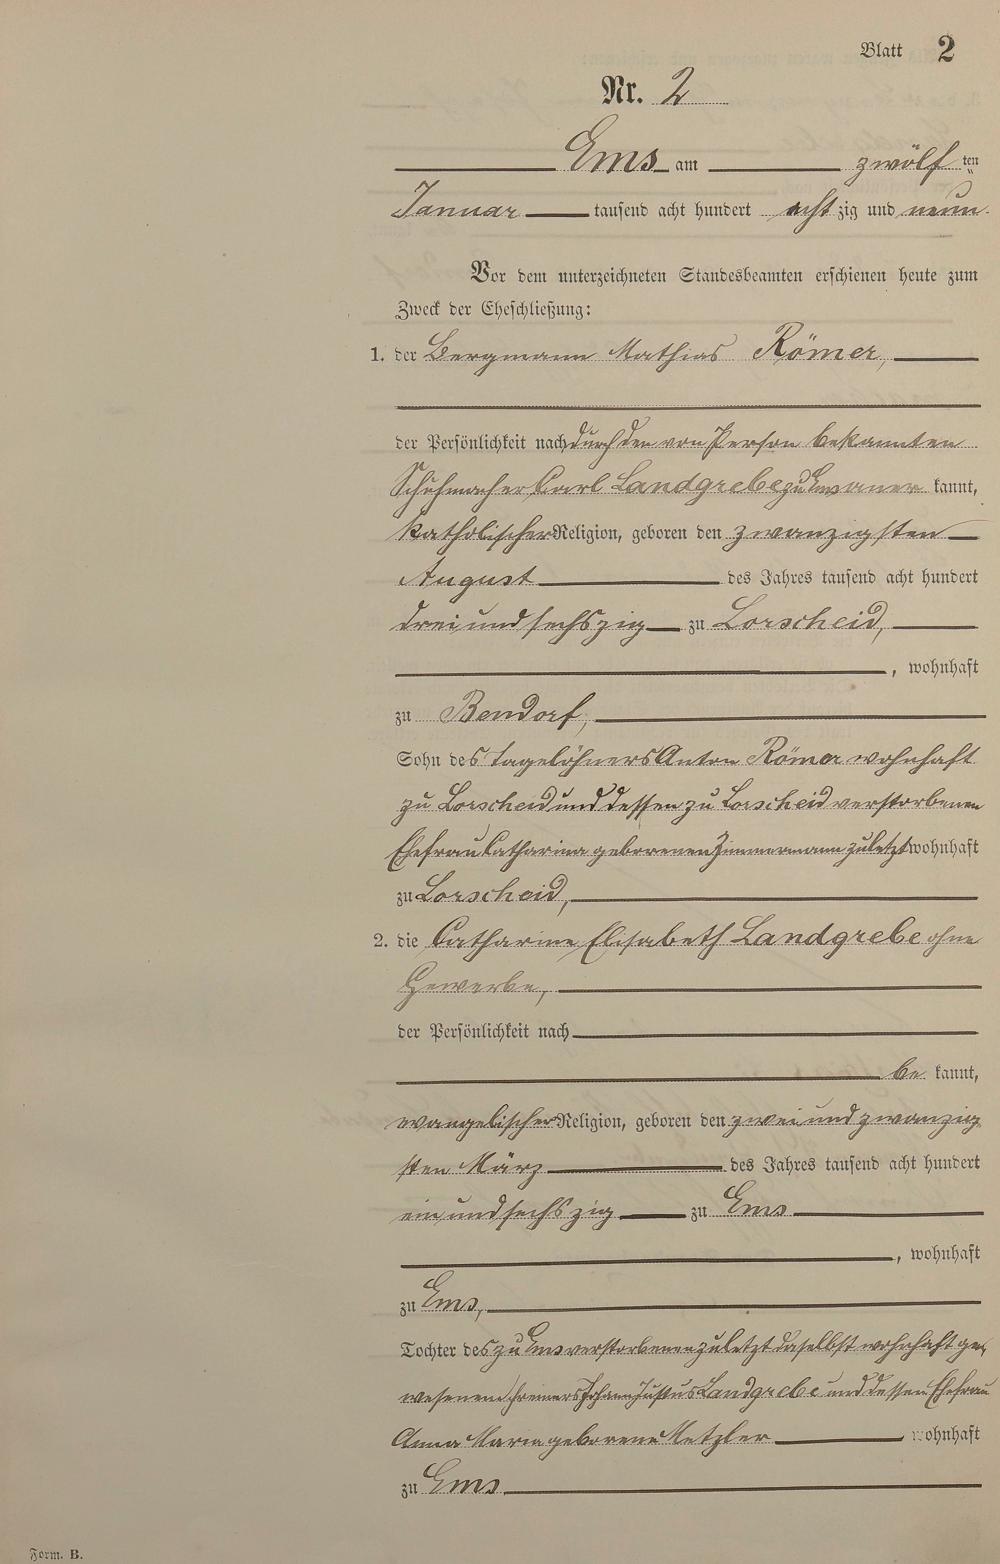 Blatt 2
Nr. 2
Ems am zwölf ten
Januar tausend acht hundert acht zig und neun.
Vor dem unterzeichneten Standesbeamten erschienen heute zum
Zweck der Eheschließung:
1. der Bergmann Mathias Römer,
der Persönlichkeit nach durch den von Person bekannten
Schuhmacher Carl Landgrebe zu Ems aner kannt,
katholischer Religion, geboren den zwanzigsten
August des Jahres tausend acht hundert
drei und sechszig zu Lorscheid,
, wohnhaft
zu Bendorf,
Sohn des Tagelöhners Anton Römer wohnhaft
zu Lorscheid und dessen zu Lorscheid verstorbenen
Ehefrau Catharina geborenen Zimmermann zuletzt wohnhaft
zu Lorscheid,
2. die Catharine Elisabeth Landgrebe ohne
Gewerbe,
der Persönlichkeit nach
be kannt,
evangelischer Religion, geboren den zwei und zwanzig
sten März des Jahres tausend acht hundert
ein und sechszig zu Ems
, wohnhaft
zu Ems,
Tochter des zu Ems verstorbenen zuletzt daselbst wohnhaft ge-
wesenen Schreiners Johann Justus Landgrebe und dessen Ehefrau
Anna Maria geborene Metzler wohnhaft
zu Ems
Form. B.